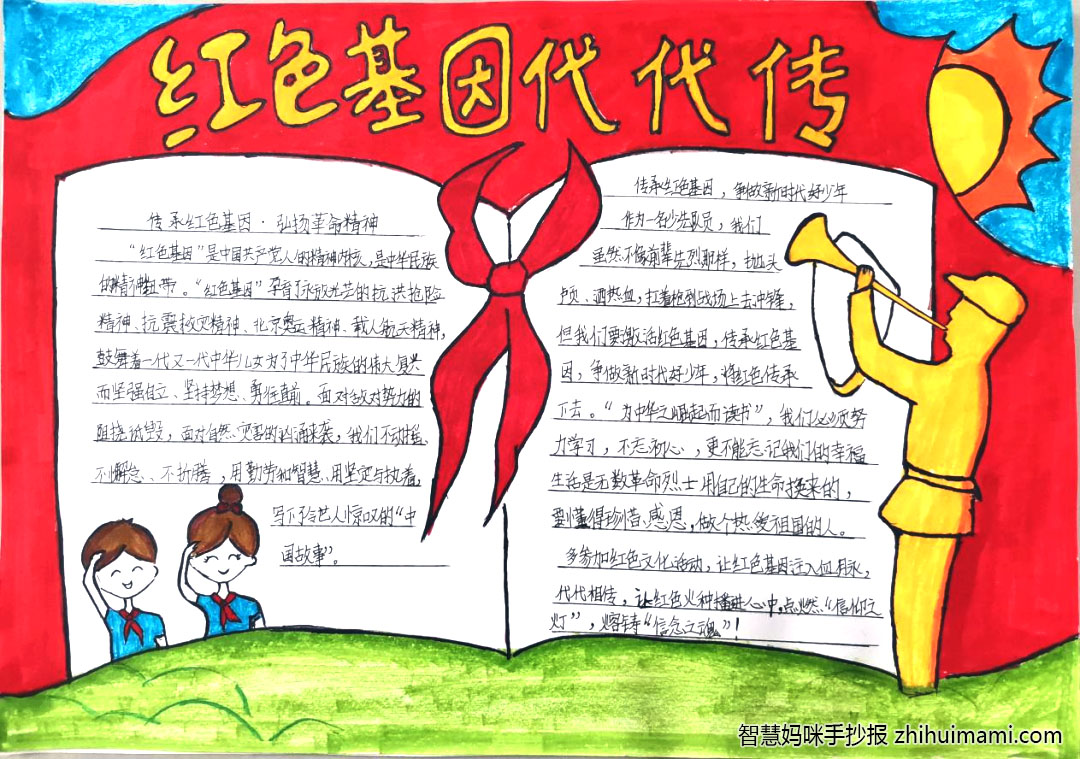 红色基因代代传
传承红色基因·弘扬革命精神
“红色基因”是中国共产党人的精神内核,是中华民族
的精神纽带。“红色基因”孕育了永放光芒的抗洪抢险
精神、抗震救灾精神、北京奥运精神、载人航天精神,
鼓舞着一代又一代中华儿女为了中华民族的伟大复兴
而坚强自立、坚持梦想、勇往直前。面对敌对势力的
阻挠诋毁,面对自然灾害的汹涌来袭,我们不动摇、
不懈怠、不折腾,用勤劳和智慧、用坚定与执着,
写下了令世人惊叹的“中
国故事”。
传承红色基因,争做新时代好少年
作为一名少先队员,我们
虽然不像前辈先烈那样,抛头
颅、洒热血,扛着枪到战场上去冲锋,
但我们要激活红色基因,传承红色基
因,争做新时代好少年,将红色传承
下去。“为中华之崛起而读书”,我们必须努
力学习,不忘初心,更不能忘记我们的幸福
生活是无数革命烈士用自己的生命换来的,
要懂得珍惜、感恩,做个热爱祖国的人。
多参加红色文化活动,让红色基因注入血脉,
代代相传,让红色火种播进心中,点燃“信仰之
灯”,熔铸“信念之魂”!
智慧妈咪手抄报 zhihuimami.com